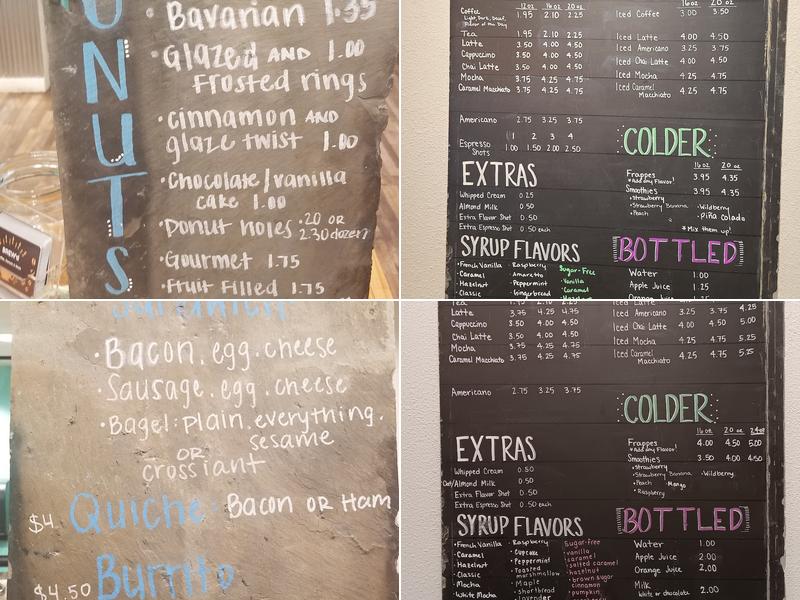 DONUTS
· Bavarian 1.35
· Glazed AND 1.00
Frosted rings
· cinnamon AND
glaze twist 1.00
· Chocolate/vanilla
cake 1.00
· Donut holes .20 OR
2.30 dozen
· Gourmet 1.75
· Fruit Filled 1.75
12oz 16oz 20oz
Coffee 1.95 2.10 2.25
Light, Dark, Decaf,
Flavor of the Day
Tea 1.95 2.10 2.25
Latte 3.50 4.00 4.50
Cappuccino 3.50 4.00 4.50
Chai Latte 3.50 4.00 4.50
Mocha 3.75 4.25 4.75
Caramel Macchiato 3.75 4.25 4.75
Americano 2.75 3.25 3.75
1 2 3 4
Espresso Shots 1.00 1.50 2.00 2.50
16oz 20oz
Iced Coffee 3.00 3.50
Iced Latte 4.00 4.50
Iced Americano 3.25 3.75
Iced Chai Latte 4.00 4.50
Iced Mocha 4.25 4.75
Iced Caramel Macchiato 4.25 4.75
EXTRAS
Whipped Cream 0.25
Almond Milk 0.50
Extra Flavor Shot 0.50
Extra Espresso Shot 0.50
COLDER
16oz 20oz
Frappes 3.95 4.35
*Add any Flavor!
Smoothies 3.95 4.35
·Strawberry
·Strawberry Banana ·Wildberry
·Peach ·Piña Colada
*Mix them up!
SYRUP FLAVORS
·French Vanilla ·Raspberry Sugar-Free
·Caramel ·Amaretto ·Vanilla
·Hazelnut ·Peppermint ·Caramel
·Classic ·Gingerbread ·Hazelnut
BOTTLED
Water 1.00
Apple Juice 1.25
Orange Juice
Sandwich
· Bacon, egg, cheese
· Sausage, egg, cheese
· Bagel: plain, everything,
sesame
OR
crossiant
$4 Quiche: Bacon OR Ham
$4.50 Burrito
Latte 3.75 4.25 4.75
Cappuccino 3.50 4.00 4.50
Chai Latte 3.50 4.00 4.50
Mocha 3.75 4.25 4.75
Caramel Macchiato 3.75 4.25 4.75
Americano 2.75 3.25 3.75
Iced Americano 3.25 3.75 4.25
Iced Chai Latte 4.00 4.50 5.00
Iced Mocha 4.25 4.75 5.25
Iced Caramel Macchiato 4.25 4.75 5.25
EXTRAS
Whipped Cream 0.50
Oat/Almond Milk 0.50
Extra Flavor Shot 0.50
Extra Espresso Shot 0.50 each
COLDER
16oz 20oz 24oz
Frappes 4.00 4.50 5.00
*Add any Flavor!
Smoothies 3.50 4.00 4.50
·Strawberry
·Strawberry Banana ·Wildberry
·Peach ·Mango
·Raspberry
SYRUP FLAVORS
·French Vanilla ·Raspberry Sugar-Free
·Caramel ·Cupcake ·vanilla
·Hazelnut ·Peppermint ·caramel
·Classic ·Toasted marshmallow ·salted caramel
·Mocha ·Maple ·hazelnut
·White Mocha ·shortbread ·brown sugar cinnamon
·lavender ·pumpkin
BOTTLED
Water 1.00
Apple Juice 2.00
Orange Juice 2.00
Milk 2.00
White or chocolate